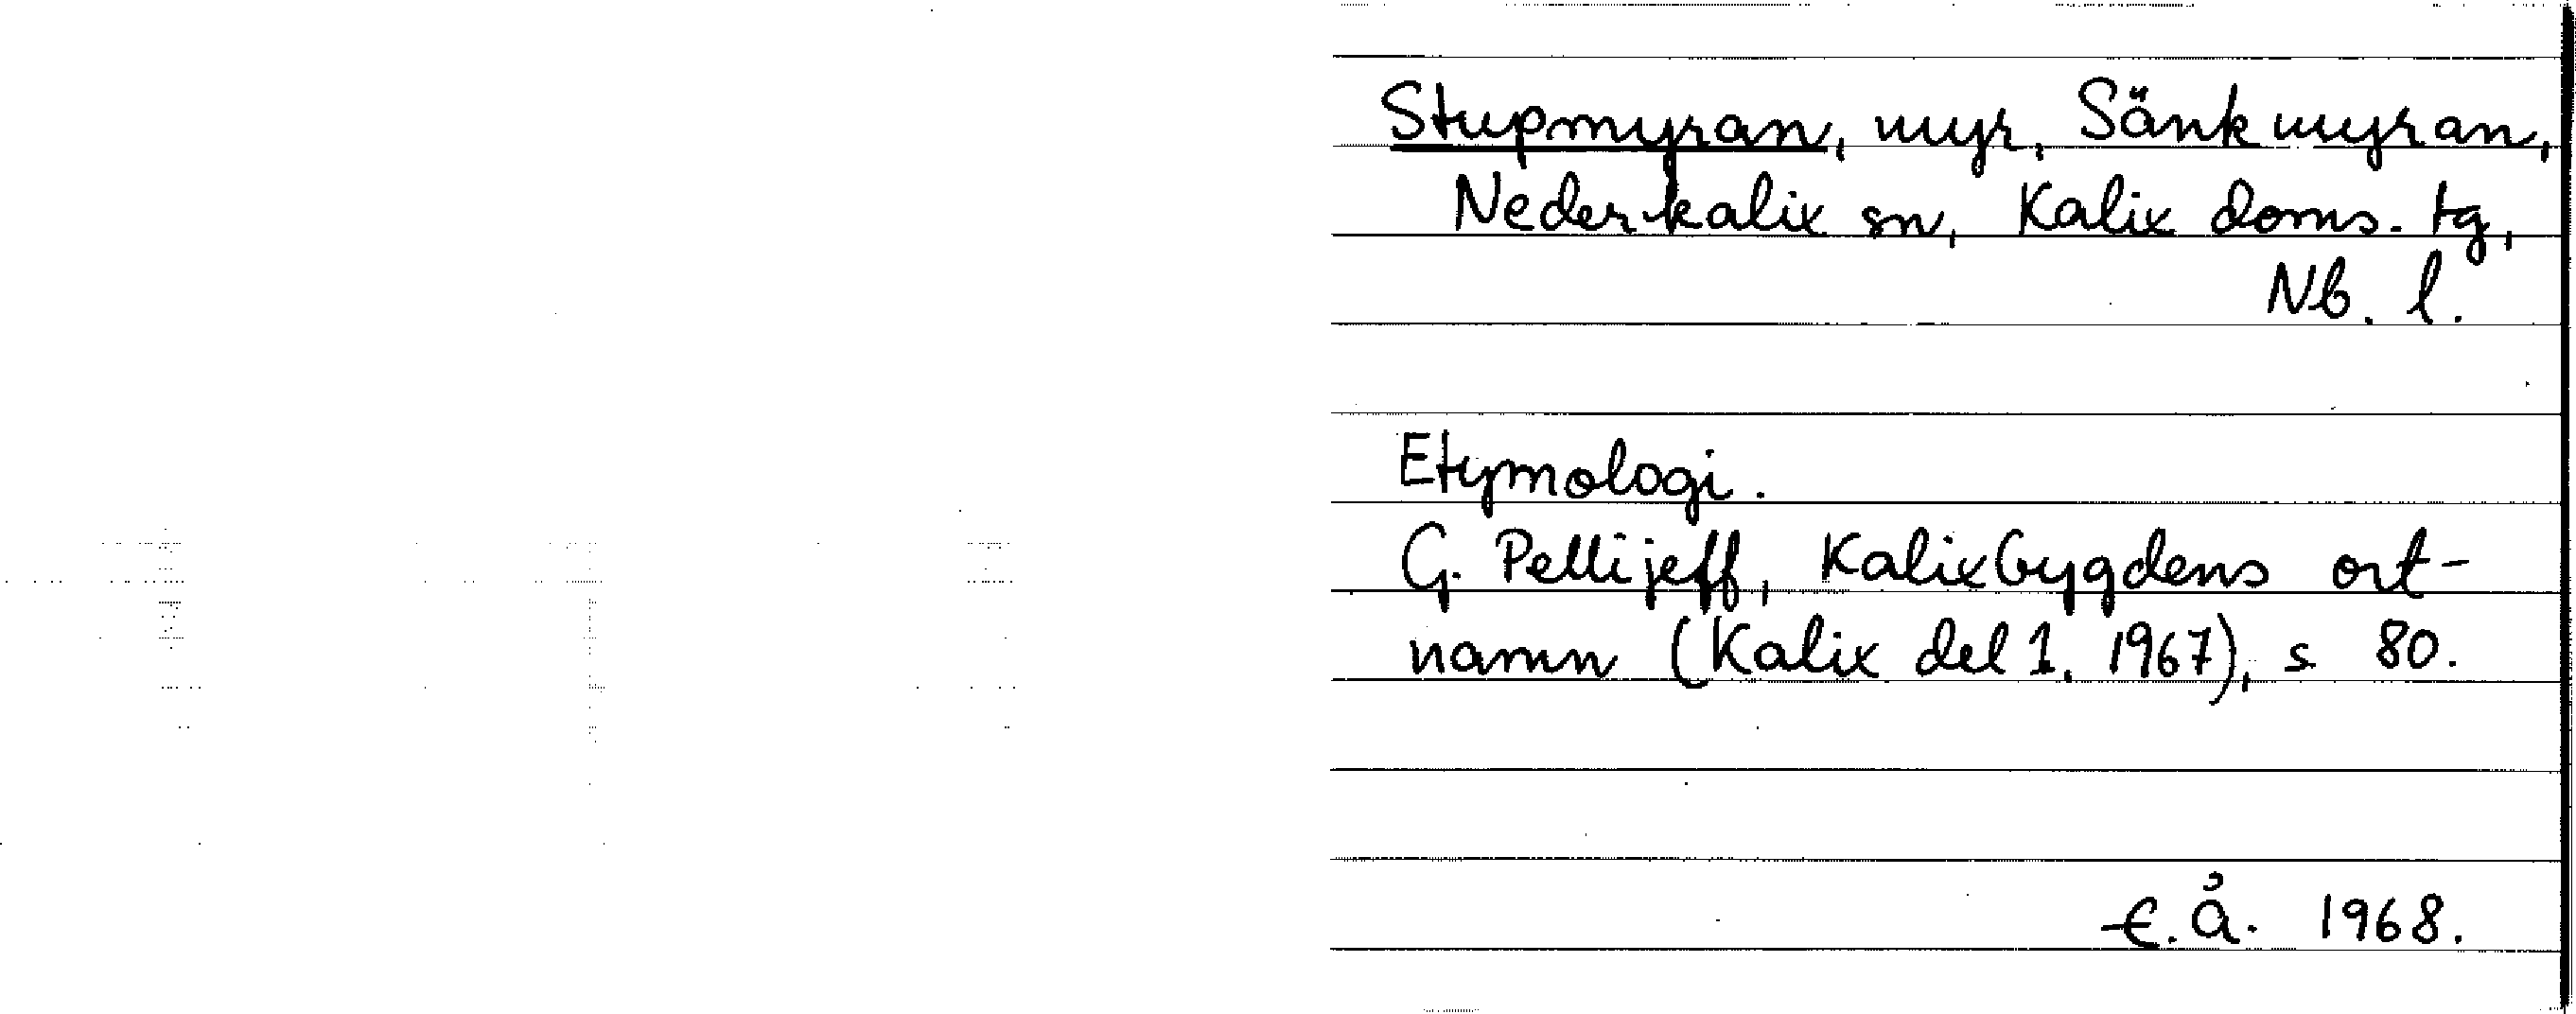 Stupmyran, myr, Sänkmyran,
Nederkalix sn, Kalix doms. tg,
Nb. l.
Etymologi.
G. Pellijeff, Kalixbygdens ort-
namn (Kalix del 1. 1967), s 80.
E. Å. 1968.